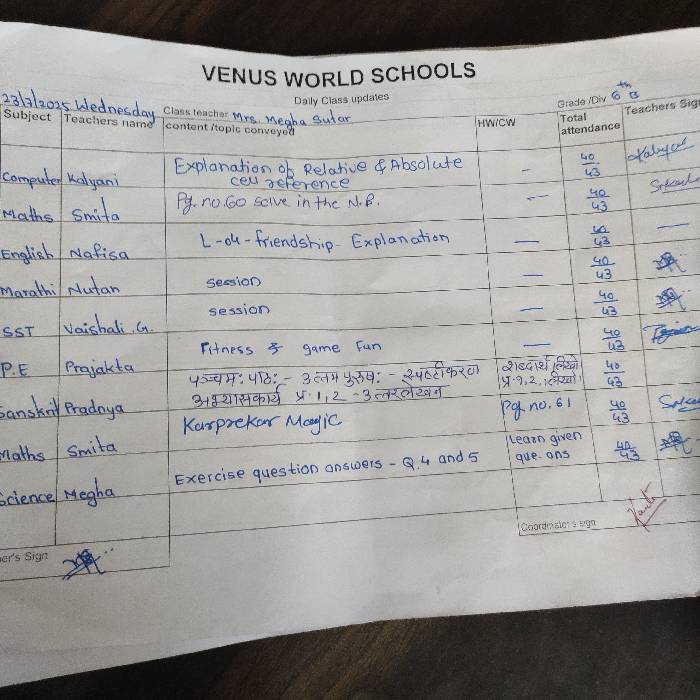 VENUS WORLD SCHOOLS
Daily Class updates
23/7/2025 Wednesday Class teacher Mrs. Megha Sutar Grade /Div 6th B
Subject Teachers name content /topic conveyed HW/CW Total attendance Teachers Sign
Computer Kalyani Explanation of Relative & Absolute cell reference — 40/43
Maths Smita Pg. no. 60 solve in the N.B. — 40/43
English Nafisa L-04-friendship- Explanation — 40/43 —
Marathi Nutan session — 40/43
SST Vaishali.G. session — 40/43
P.E Prajakta Fitness & game Fun — 40/43
Sanskrit Pradnya पञ्चमः पाठः - उत्तम पुरुषः - स्पष्टीकरण शब्दार्थ लिखो 40/43
अभ्यासकार्य प्र. 1, 2 - उत्तरलेखन प्र. 1, 2, लिखो
Maths Smita Karprekar Magic Pg. no. 61 40/43
Science Megha Exercise question answers - Q.4 and 5 Learn given que. ans 40/43
er's Sign Coordinator's sign